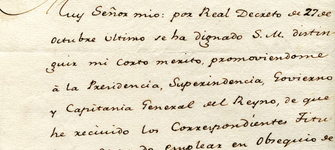 Muy Señor mio: por Real Decreto de 27 de
Octubre ultimo se ha dignado S.M. distin
guir mi corto merito, promoviendome
à la Presidencia, Superindencia, Govierno
y Capitania General del Reyno, de que
he recivido los Correspondientes Titu
emplear en Obsequio de